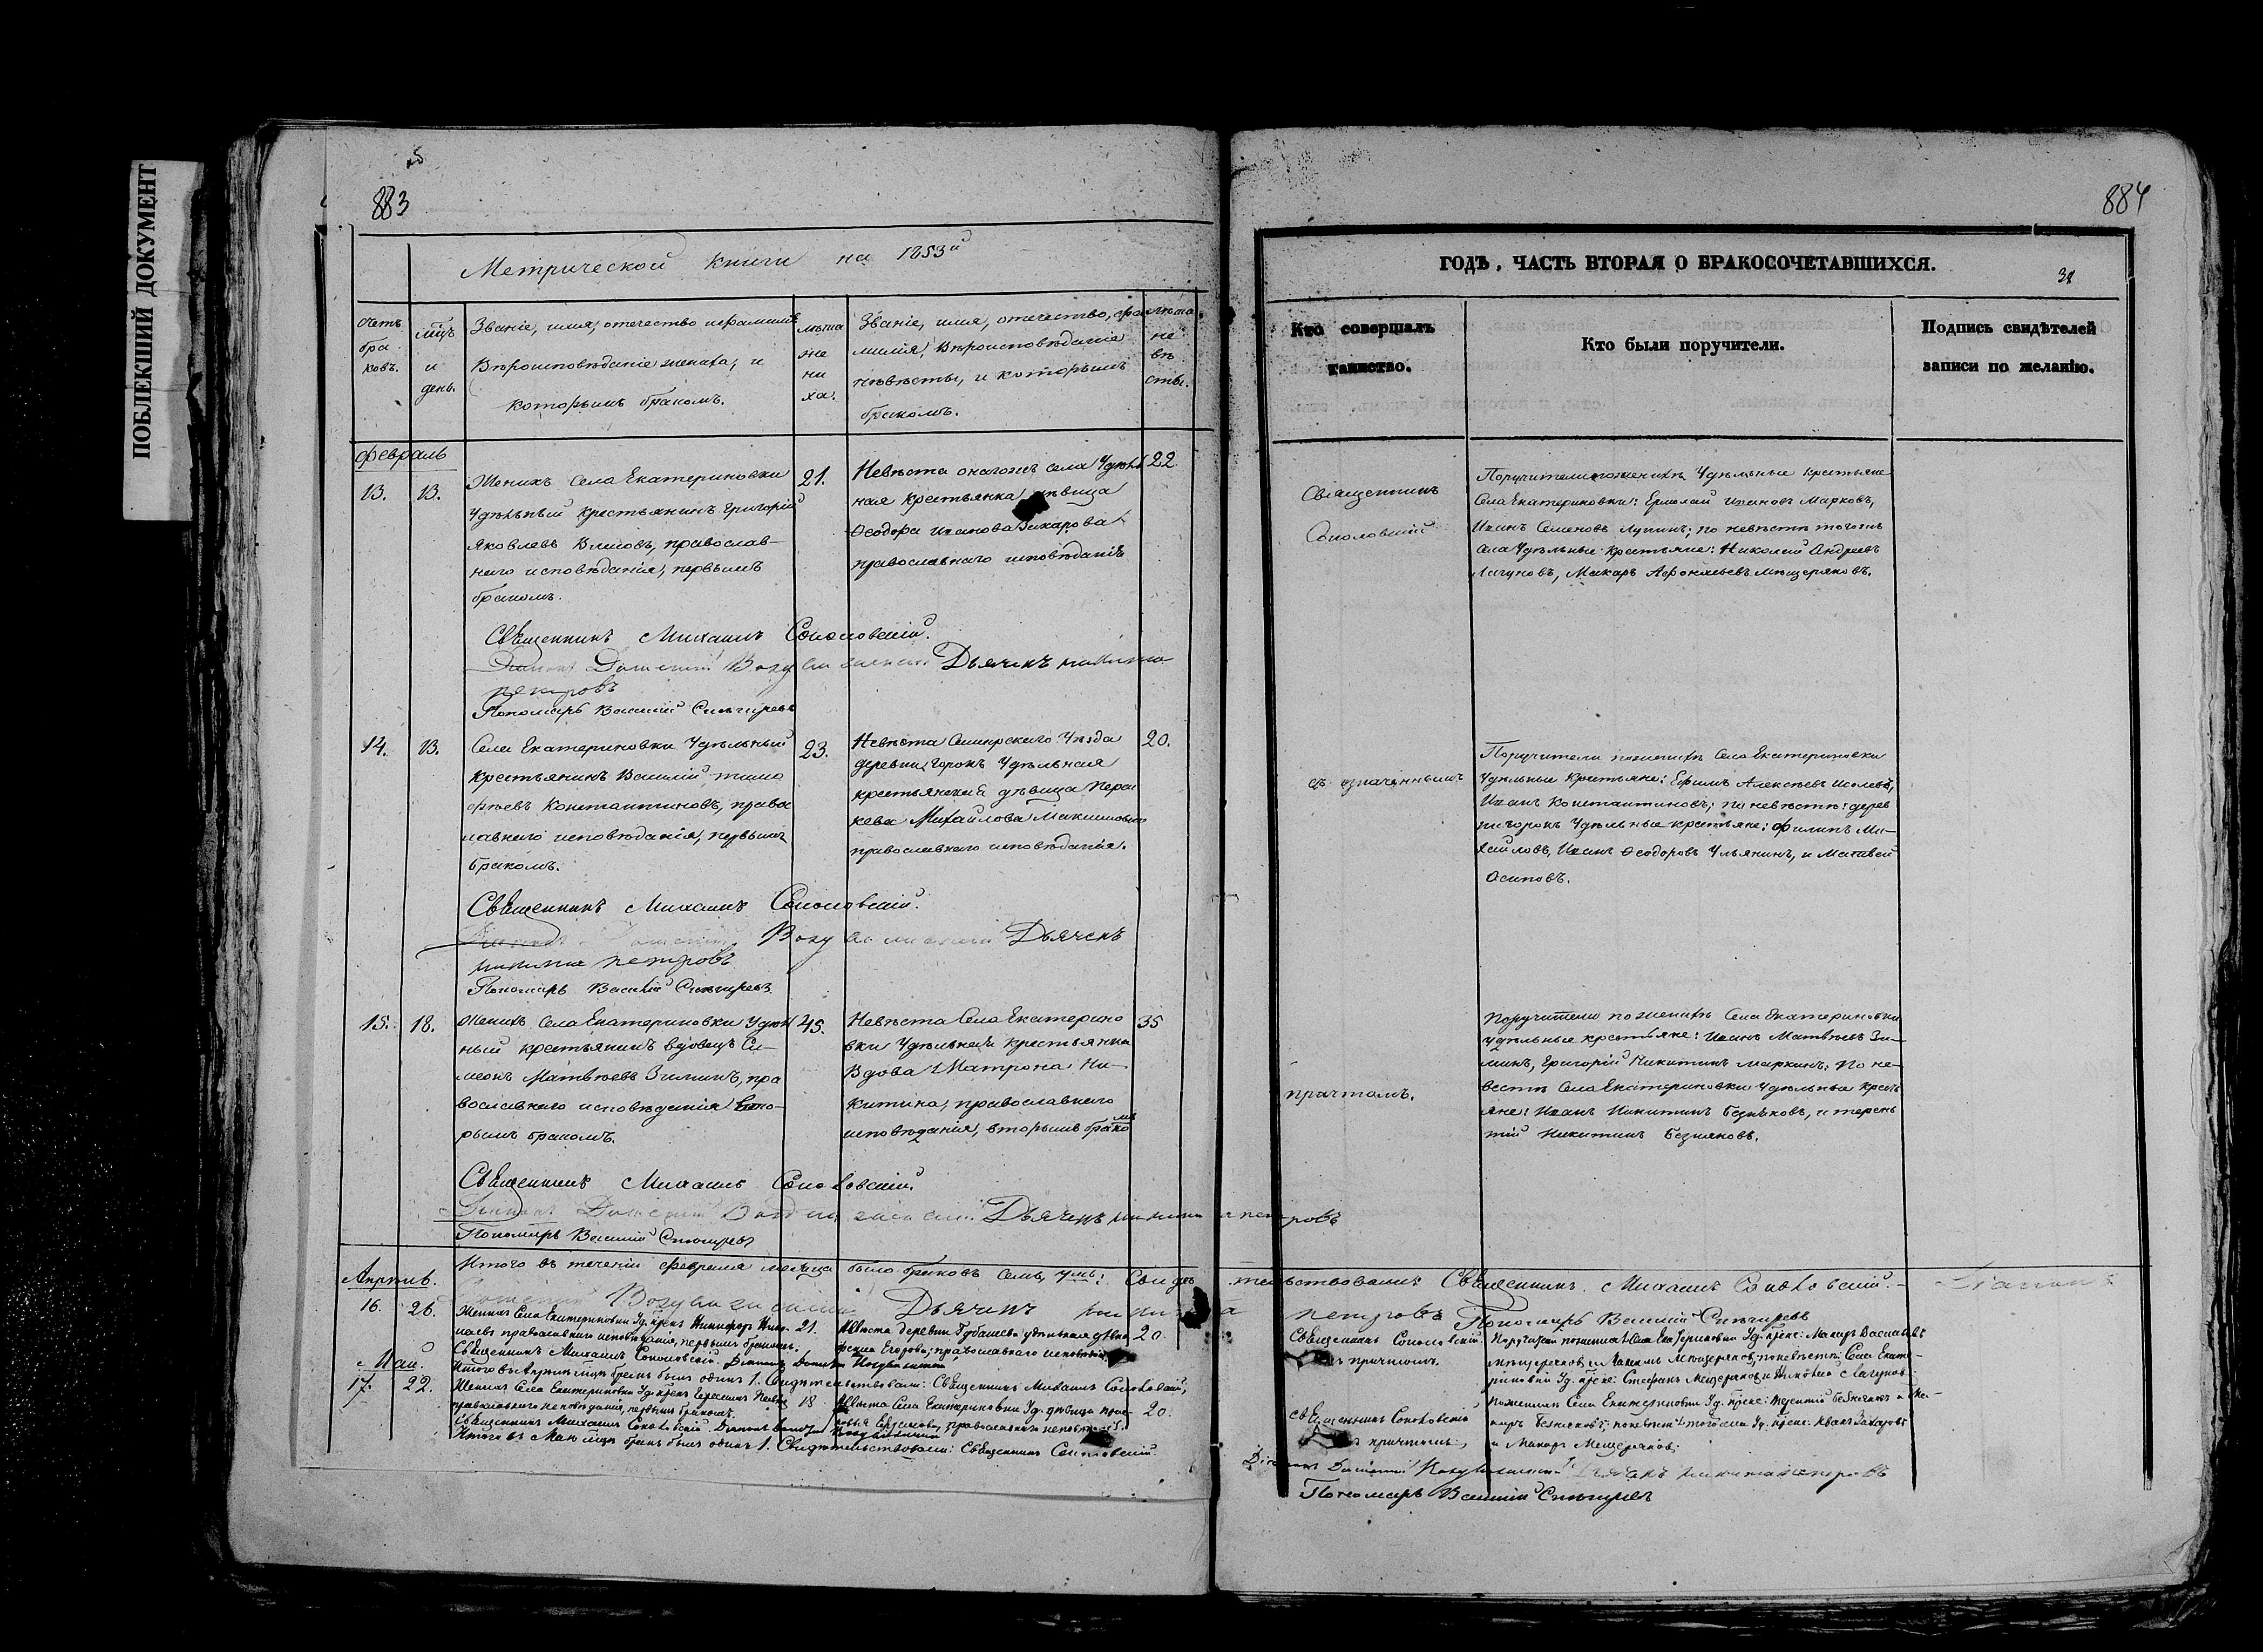 ПОБЛЕКШИЙ ДОКУМЕНТ
883
Метрической книги на 1853й
Счетъ браковъ.
мцъ и день.
Званіе, имя, отечество и фамилія
Вѣроисповѣданіе жениха, и
которымъ бракомъ.
лѣта жениха.
Званіе, имя, отечество, фа
милія, Вѣроисповѣданіе
невѣсты, и которымъ
бракомъ.
лѣта невѣсты.
февраль
13. 13.
Женихъ села Екатериновки
Удѣльный крестьянинъ Григорій
Яковлевъ православ-
наго исповѣданія, первымъ
бракомъ.
21.
Невѣста онагожъ села Удѣль
ная крестьянка, дѣвица
Ѳеодора Иванова Захарова
православнаго исповѣданія
22
Священникъ Михаилъ Соколовскій.
Дьячекъ Никита
Петровъ
Пономарь Василій Снѣгиревъ
14. 13.
Села Екатериновки Удѣльный
крестьянинъ Василій Тимо
фѣевъ Константиновъ, право
славнаго исповѣданія, первымъ
бракомъ.
23.
Невѣста Симбирскаго Уѣзда
деревни Горокъ Удѣльная
крестьянская дѣвица Парас
кева Михайлова Максимова
православнаго исповѣданія.
20.
Священникъ Михаилъ Соколовскій.
Дьячекъ
Никита Петровъ
Пономарь Василій Снѣгиревъ
15. 18.
Женихъ села Екатериновки Удѣль
ный крестьянинъ вдовецъ Си-
меонъ Матвѣевъ Зиминъ, пра
вославнаго исповѣданія вто-
рымъ бракомъ.
45.
Невѣста Села Екатерино
вки Удѣльная крестьянка
Вдова Матрона Ни-
китина, православнаго
исповѣданія, вторымъ бракомъ
35
Священникъ Михаилъ Соколовскій.
Дьячекъ Никита Петровъ
Пономарь Василій Снѣгиревъ
Итого въ теченіи февраля месяца было браковъ семь, 7мь: Свидѣтельствовали: Священникъ Михаилъ Соколовскій. Діаконъ
Дьячекъ Никита Петровъ Пономарь Василій Снѣгиревъ
Апрѣль.
16. 26.
Женихъ Села Екатериновки Уд. крест. Никифоръ
православнаго исповѣданія, первымъ бракомъ.
21.
Невѣста деревни удѣльная дѣвица
Егорова, православнаго исповѣданія
20.
Священникъ Михаилъ Соколовскій.
Итого въ Апрѣлѣ мцѣ бракъ былъ одинъ 1. Свидѣтельствовали: Священникъ Михаилъ Соколовскій,
Май.
17. 22.
Женихъ Села Екатериновки Уд. крест.
православнаго исповѣданія, первымъ бракомъ.
18
Невѣста Села Екатериновки Уд. дѣвица
православнаго исповѣданія.
20.
Священникъ Михаилъ Соколовскій.
Итого въ Маѣ мцѣ бракъ былъ одинъ 1. Свидѣтельствовали: Священникъ Соколовскій.
884
ГОДЪ, ЧАСТЬ ВТОРАЯ О БРАКОСОЧЕТАВШИХСЯ.
Кто совершалъ
таинство.
Кто были поручители.
Подпись свидѣтелей
записи по желанію.
Священникъ
Соколовскій
Поручители по женихѣ Удѣльные крестьяне
Села Екатериновки: Ермолай Ивановъ Марковъ,
Иванъ Семеновъ Лупинъ; по невѣстѣ тогожъ
села Удѣльные крестьяне: Николай Андреевъ
Лагуновъ, Макаръ Афонасьевъ Мещеряковъ.
съ означеннымъ
Поручители по женихѣ Села Екатериновки
Удѣльные крестьяне: Ефимъ Алексѣевъ
Иванъ Константиновъ; по невѣстѣ: дерев
ни горокъ Удѣльные крестьяне: Филипъ Ми-
хайловъ, Иванъ Ѳеодоровъ Ульянинъ, и Матвей
Осиповъ.
причтомъ.
Поручители по женихѣ Села Екатериновки
удѣльные крестьяне: Иванъ Матвѣевъ Зи-
минъ, Григорій Никитинъ Маркинъ; По не-
вестѣ Села Екатериновки Удѣльные кресть
яне: Иванъ Никитинъ Безняковъ, и Терень
тій Никитинъ Безняковъ.
Священникъ Соколовскій
съ причтомъ.
Поручители по женихѣ Села Екатериновки Уд. крест: Макаръ Васильевъ
Мещеряковъ и Максимъ Мещеряковъ, по невѣстѣ: Села Екате-
риновки Уд. крест: Стефанъ Мещеряковъ и Николай Лагуновъ.
Священникъ Соколовскій
съ причтомъ,
По женихѣ Села Екатериновки Уд. крест: Терентій Безняковъ и Ма-
каръ Безняковъ; по невѣстѣ того села Уд. крест: Иванъ Захаровъ
и Макаръ Мещеряковъ.
Дьячекъ Никита Петровъ
Пономарь Василій Снѣгиревъ